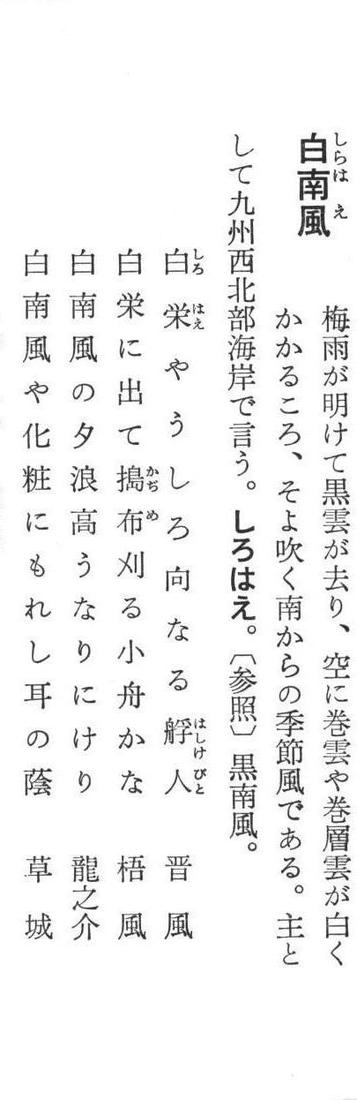 白南風
しらはえ
梅雨が明けて黒雲が去り、空に巻雲や巻層雲が白く
かかるころ、そよ吹く南からの季節風である。主と
して九州西北部海岸で言う。しろはえ。〔参照〕黒南風。
白栄やうしろ向なる艀人　晋風
しろ　はえ　はしけ　びと
白栄に出て搗布刈る小舟かな　梧風
かぢめ
白南風の夕浪高うなりにけり　龍之介
白南風や化粧にもれし耳の蔭　草城